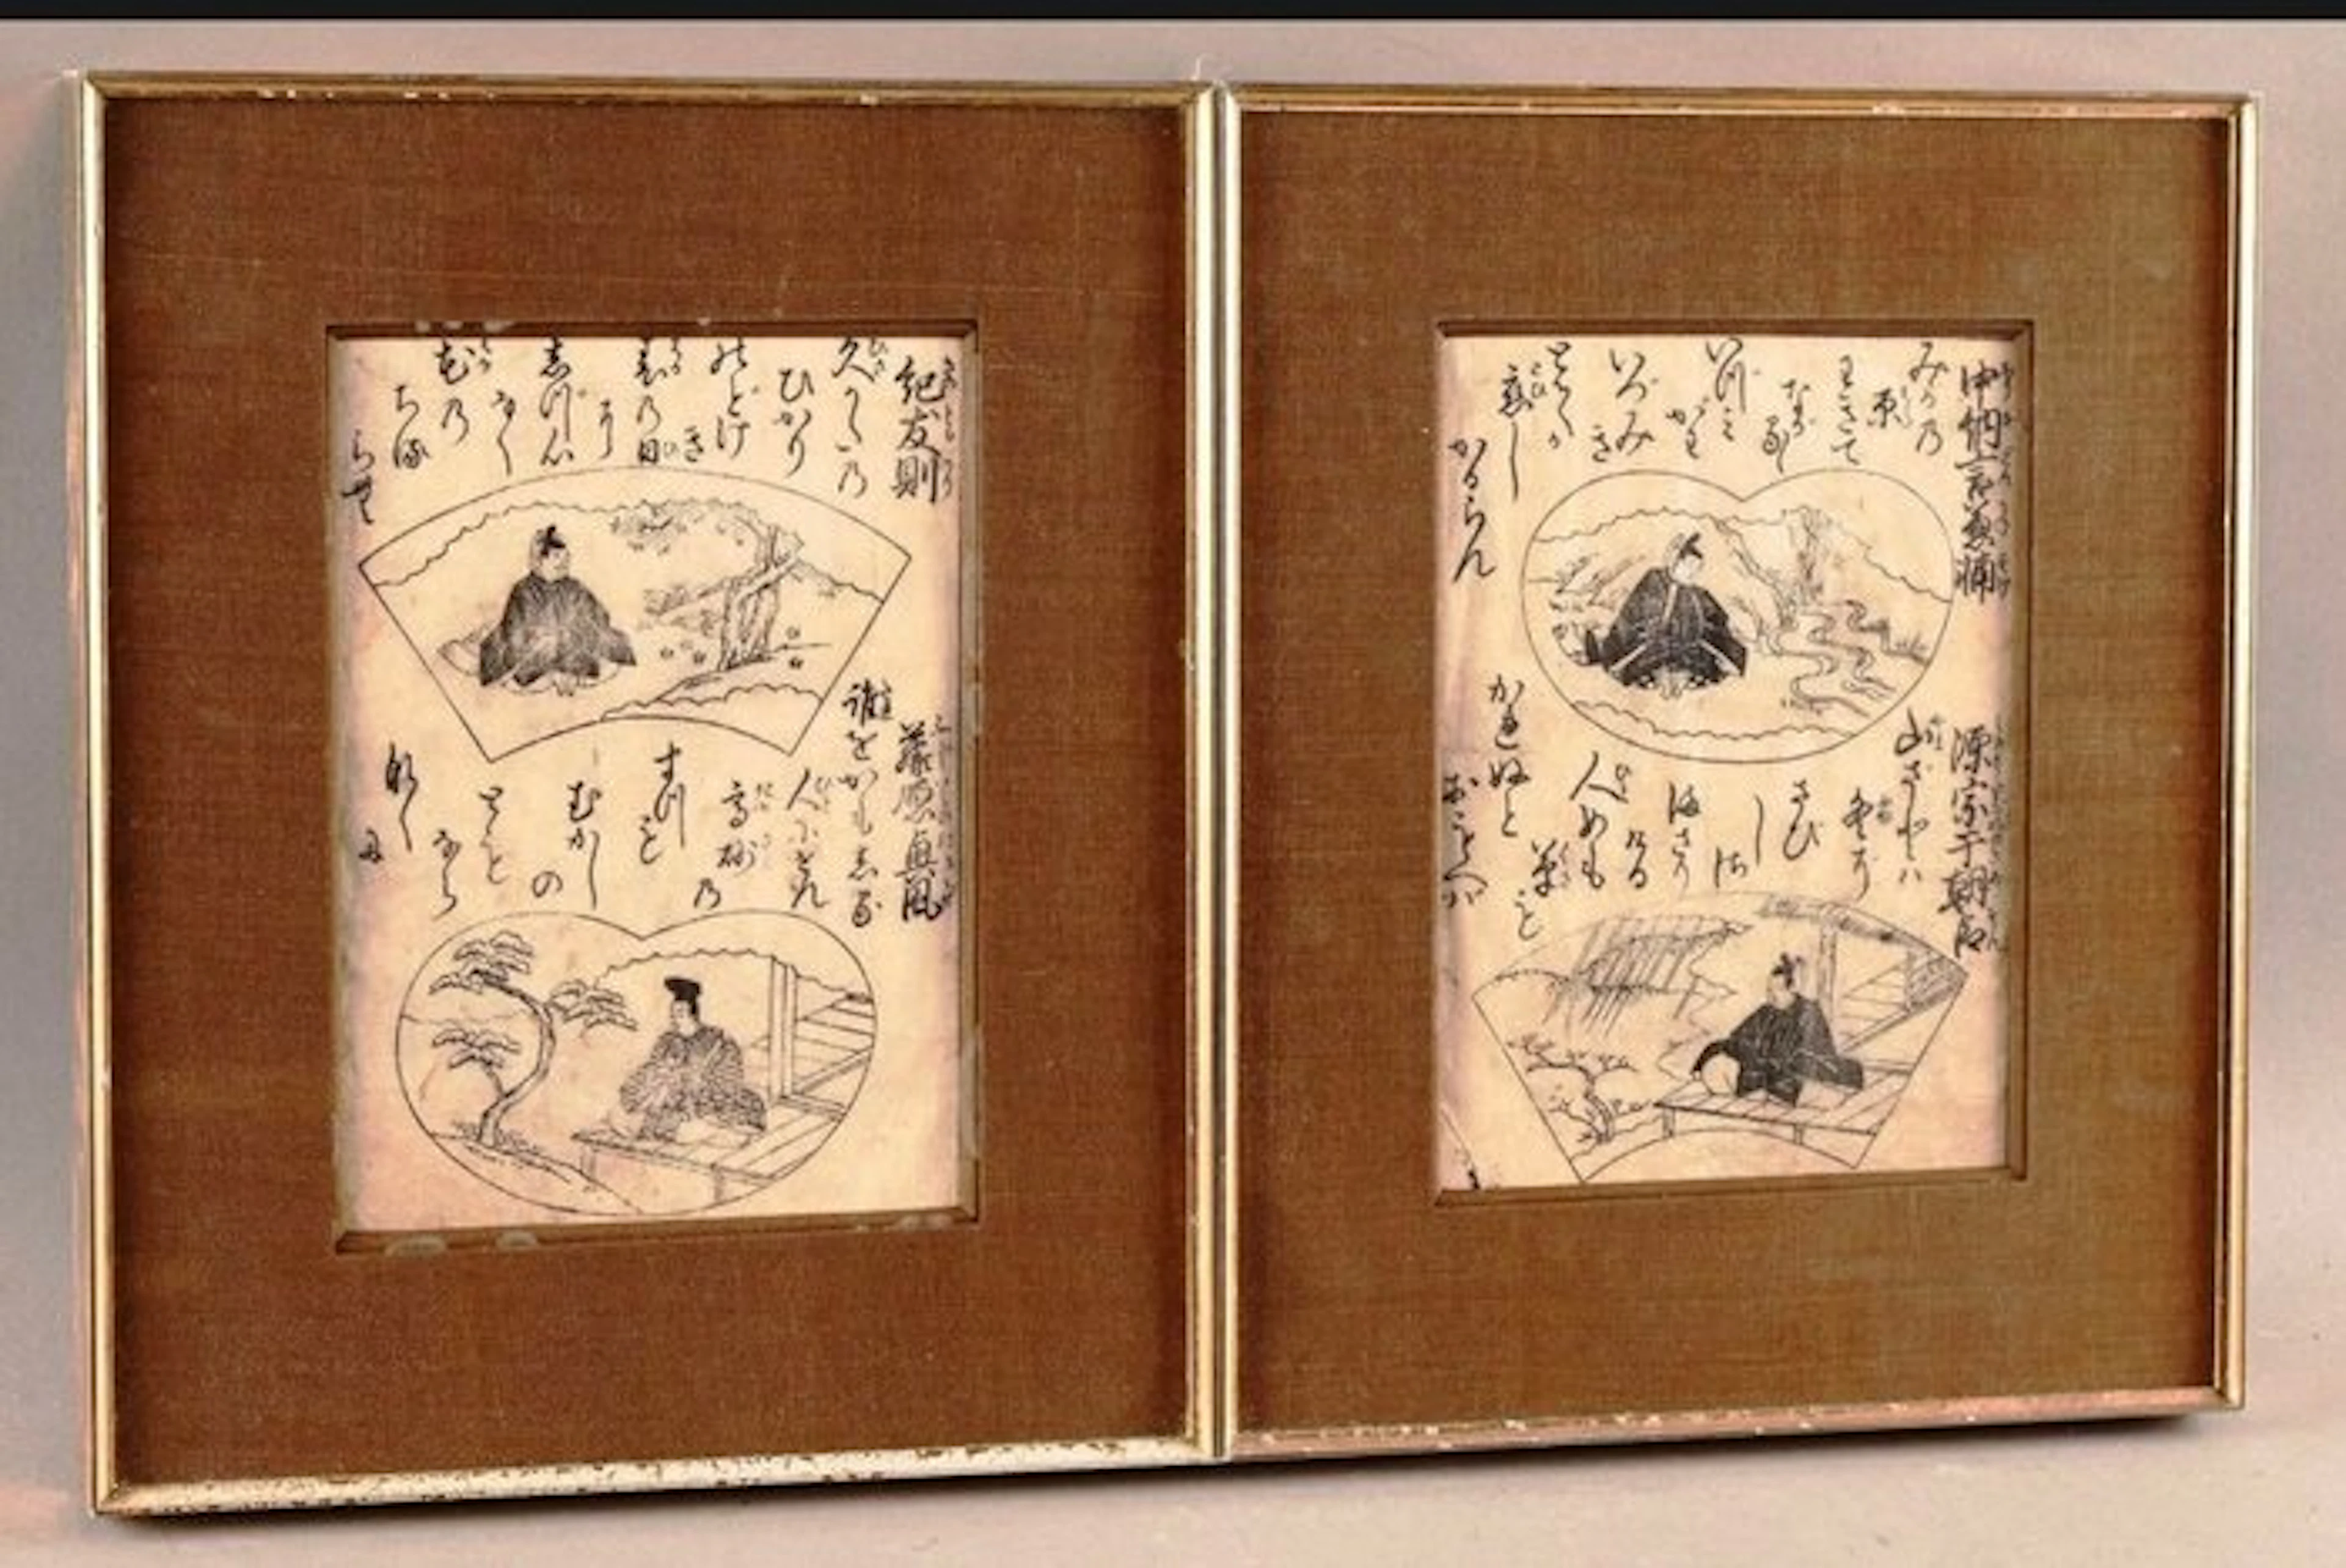 中納言兼輔
みかの
原
わきて
ながるゝ
いづみ
がは
いづみ
き
とてか
恋し
かるらん
源宗于朝臣
山ざとハ
冬ぞ
さび
し
さ
まさり
ける
人めも
草も
かれぬと
おもへバ
紀友則
久かたの
ひかり
のどけ
き
春の日
に
しづ心
なく
花の
ちる
らむ
藤原興風
誰をかもしる
人にせん
高砂
の
まつも
むかし
の
とも
なら
なく
に